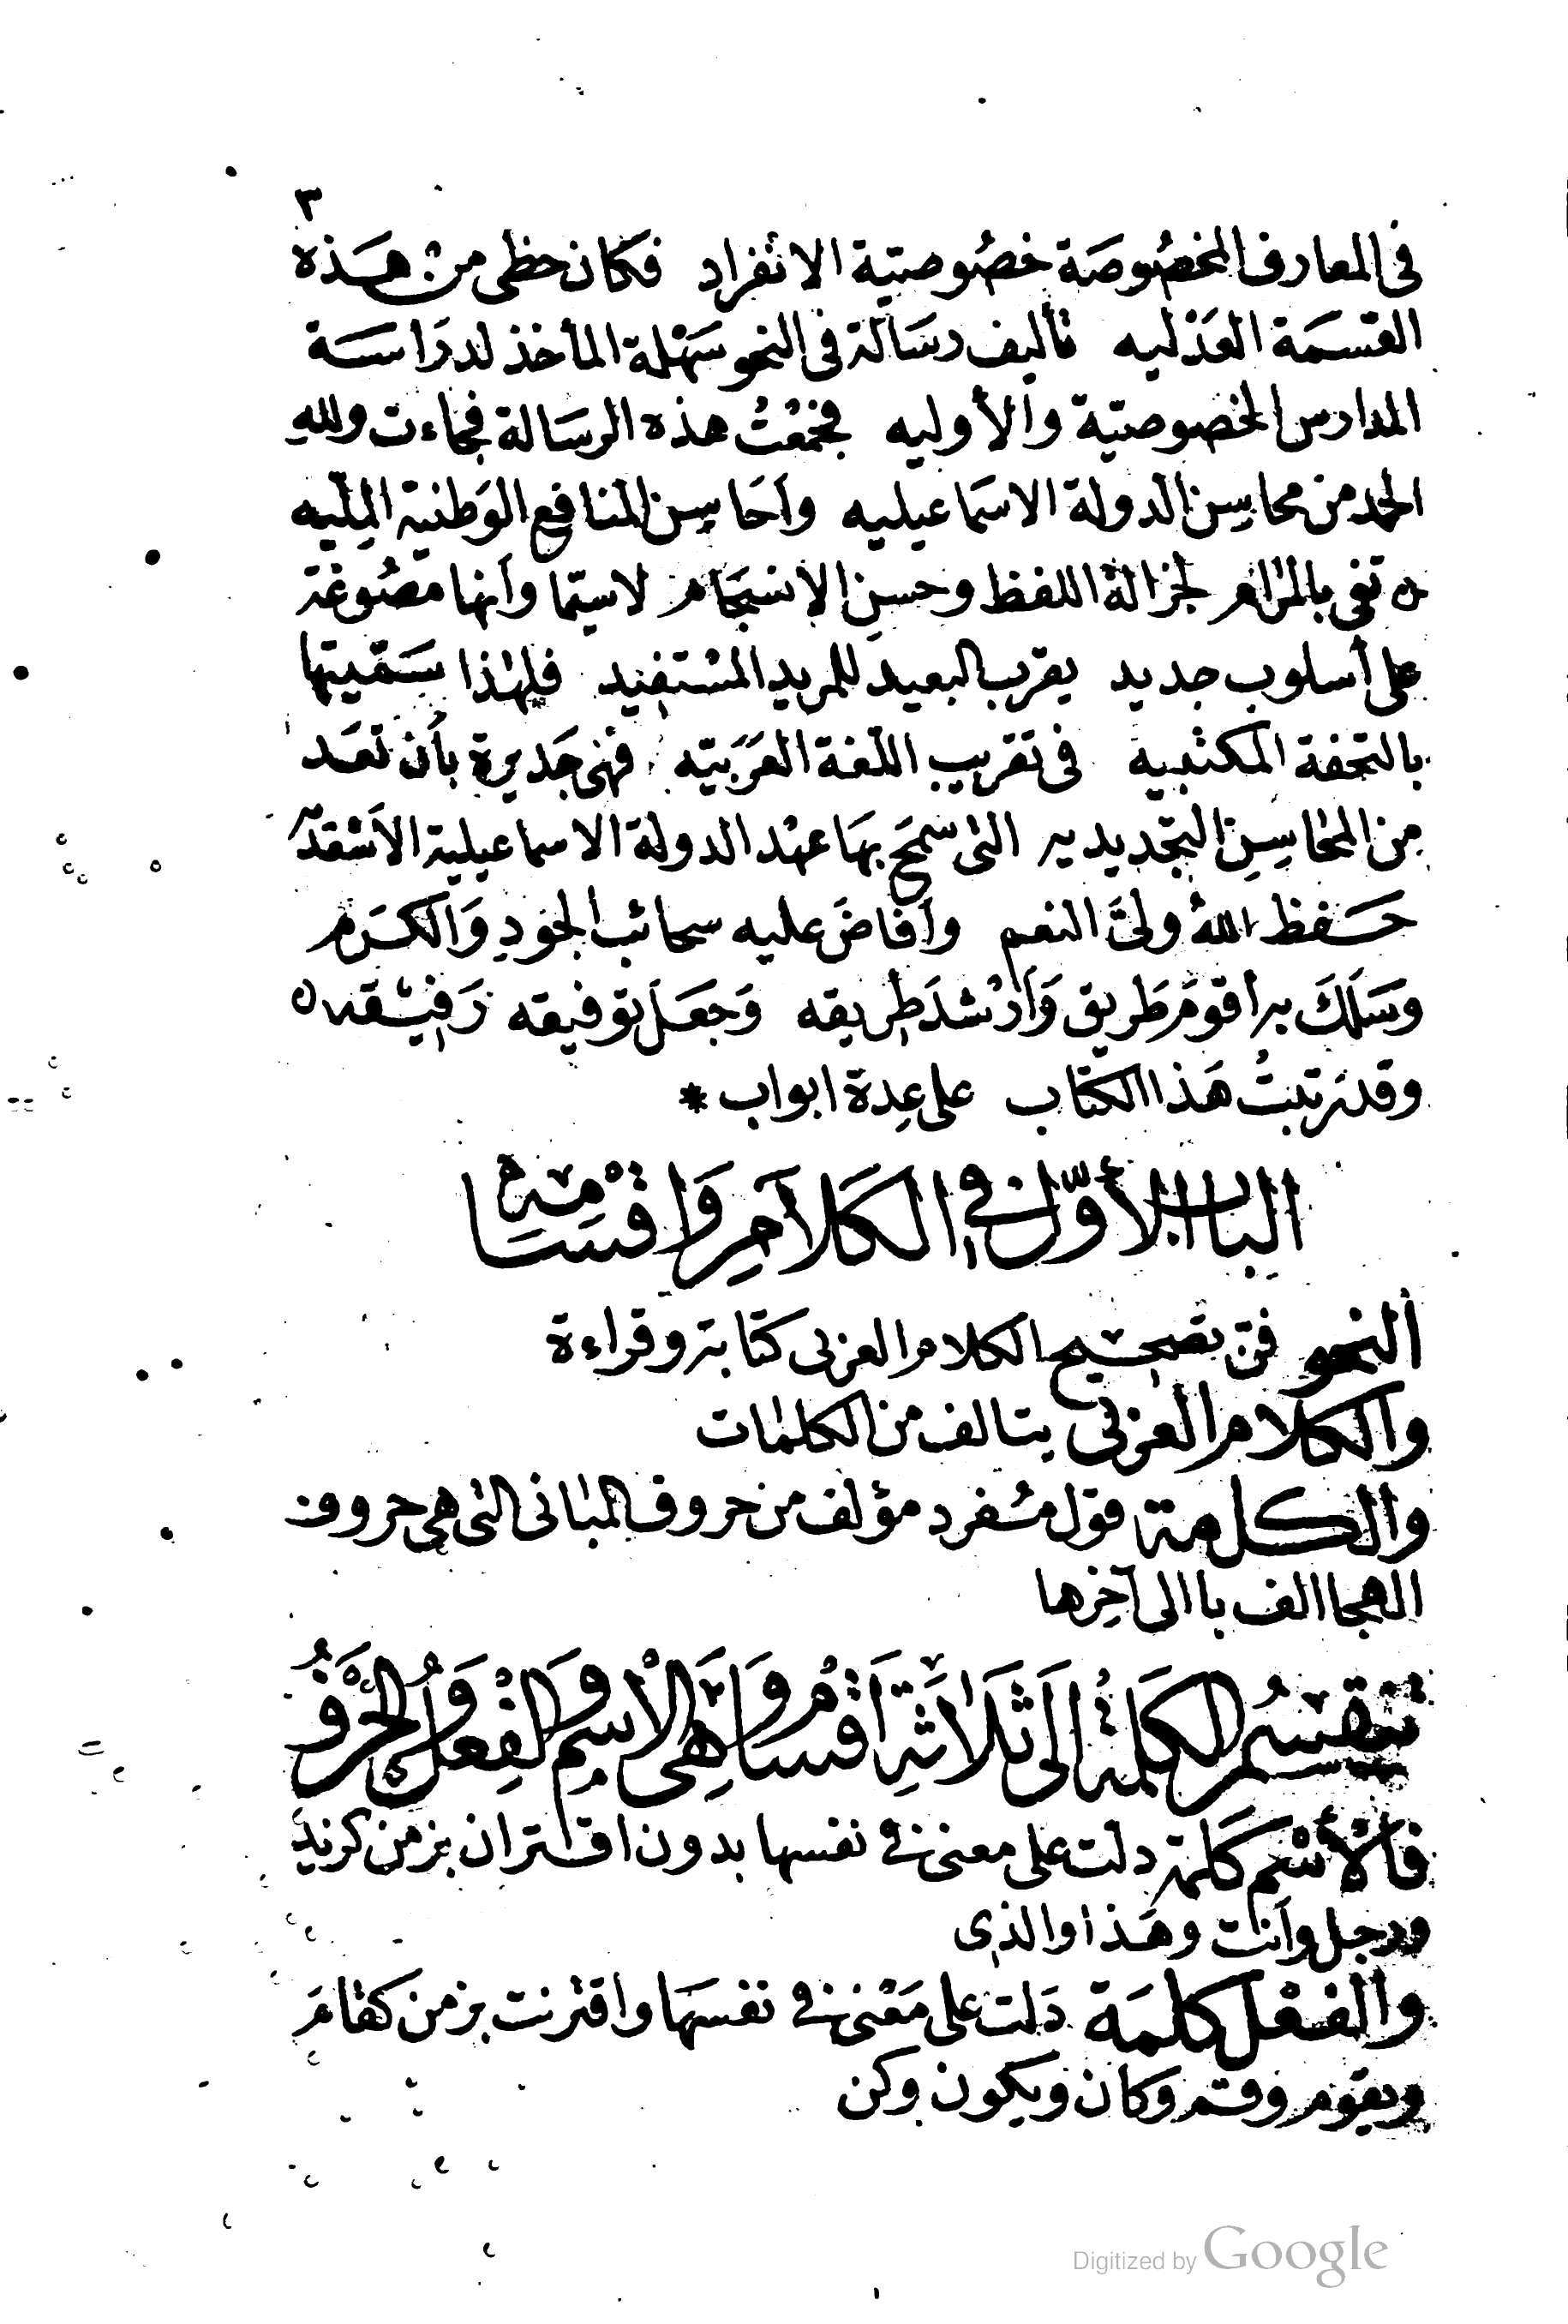 ٣
فى المعارف المخصُوصَة خصُوصيّة الانفراد فكان حظى من هَذه
القسمَة العَدْليه تأليف رسَالة فى النحو سَهْلة المأخذ لدرَاسَة
المدارس الخصوصيّة والأوليه فجمَعْتُ هذه الرسَالة فجاءت ولله
الحمد من محاسِن الدولة الاسمَاعيليه وأحَاسِن المنافع الوَطنية المِلّيه
تفى بالمرام لجزالة اللفظ وحسن الانسجَام لاسيّما وأنها مصُوغة
على أسلوب جديد يقرب البعيد للمريد المسْتفيد فلهذا سَمّيتها
بالتحفة المكتبيه فى تقريب اللغة العَرَبيّه فهى جَديرة بأن تعَد
مِن المحاسِنِ التجديديه التى سمَح بهَا عهْد الدولة الاسماعيلية الأسْعَديّه
حَفظ اللهُ ولىَّ النعم وأفاضَ عليه سحائب الجُود وَالكرَم
وَسَلَكَ به أقومَ طَريق وَأرْشدَ طريقه وَجعَل توفيقه رَفيْقه
وقد رتبتُ هَذا الكتاب على عِدة ابواب *
الباب الأوّل فى الكَلامِ وَاقسَامِه
النحو فنّ تصحيح الكلام العربى كتابة وقراءة
والكلام العربى يتالف من الكلمات
والكلمة قول مُفرد مؤلف من حروف المبانى التى هى حروف
الهجا الف با الى آخِرها
تنقسمُ الكَلمةُ الَى ثَلاثَةِ اَقسَامٍ وَهِىَ الاسْمِ وَالفِعْلُ وَالحَرْفُ
فالأسْم كَلمة دلت على معنى فى نفسها بدون اقتران بزمن كزيد
ورجل وأنت وهَذا والذى
والفعْل كلمَة دَلت على مَعْنى فى نفسهَا واقترنت بزمن كقامَ
ويقوم وقم وكان ويكون وكن
Digitized by Google